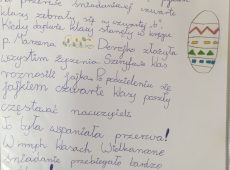 przerwie śniadaniowej czwarte
klasy zebrały się w czwartej "b".
Kiedy zajęte klasy stanęły w kręgu
p. Marzena Derejko złożyła
wszystkim życzenia Szeryfowie klas
roznosili jajka. Po podzieleniu się
jajkiem czwarte klasy poszły
częstować nauczycieli.
To była wspaniała przerwa!
W innych klasach Wielkanocne
śniadanie przebiegało bardzo